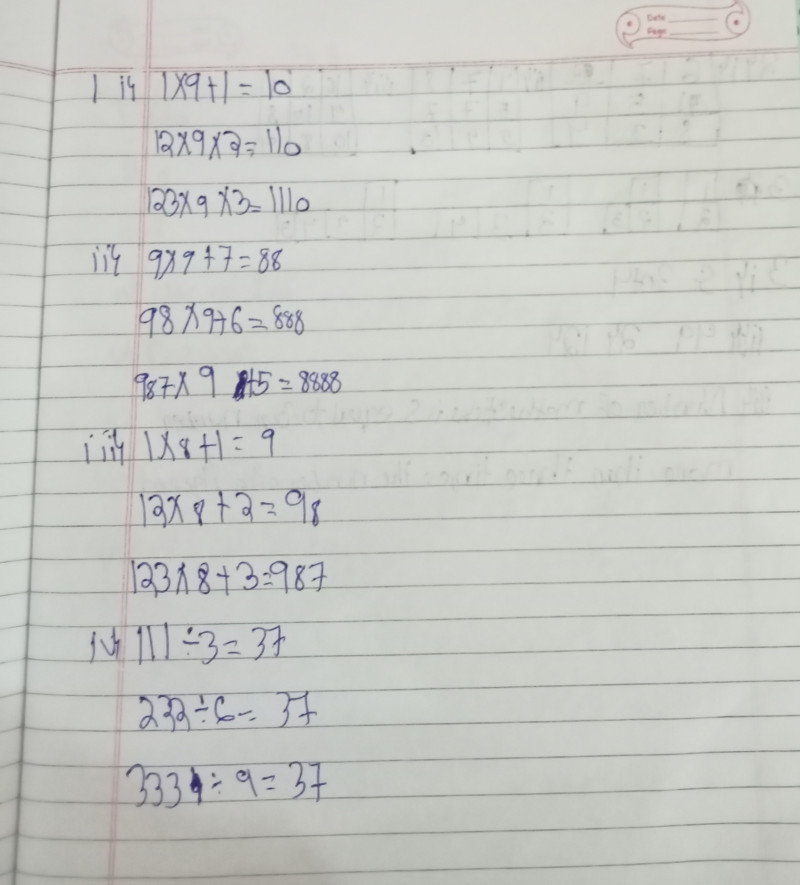 Date
Page
1 i) 1×9+1=10
12×9×2=110
123×9×3=1110
ii) 9×9+7=88
98×9+6=888
987×9+5=8888
iii) 1×8+1=9
12×8+2=98
123×8+3=987
iv) 111÷3=37
222÷6=37
333÷9=37